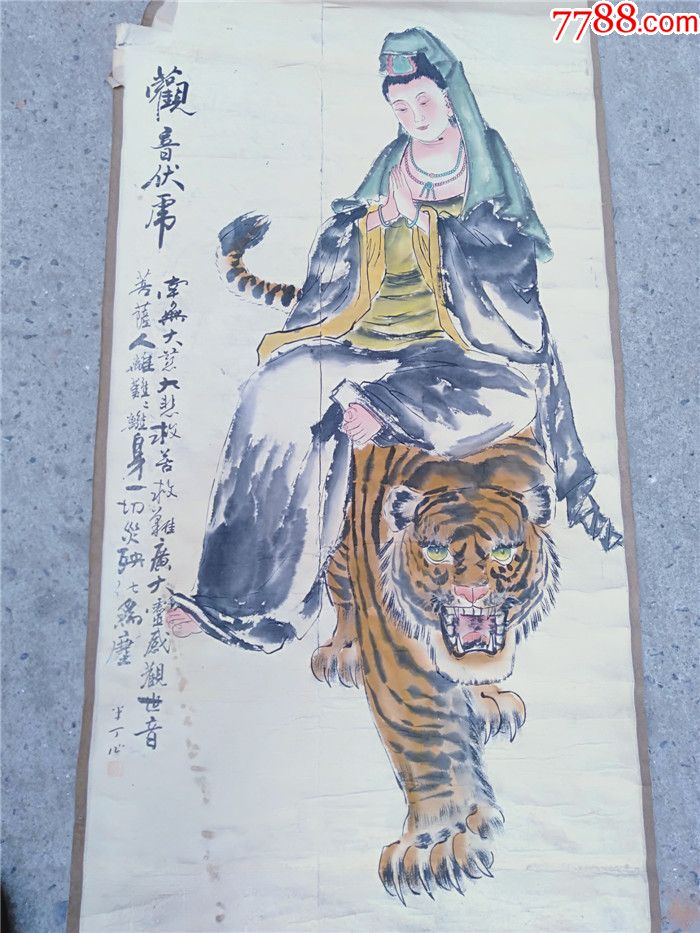 7788.com
觀音伏虎
南無大慈大悲救苦救難廣大靈感觀世音
菩薩人離難〻離身一切災殃化為塵
半丁作